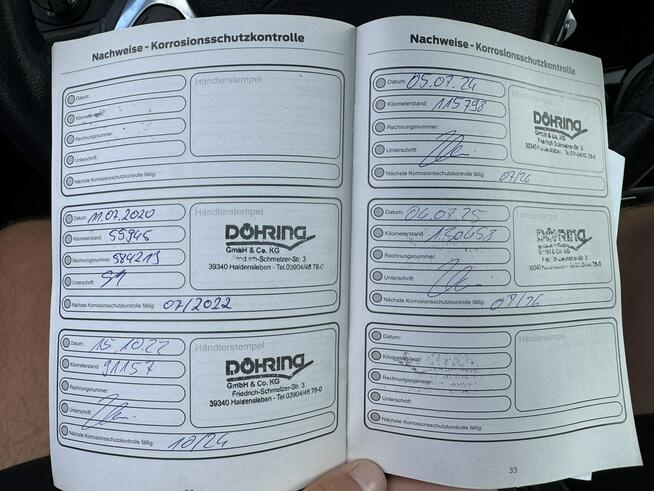 Nachweise - Korrosionsschutzkontrolle
Datum:
Kilometerstand:
Rechnungsnummer:
Unterschrift:
Nächste Korrosionsschutzkontrolle fällig:
Händlerstempel
Datum: 11.07.2020
Kilometerstand: 55946
Rechnungsnummer: 584213
Unterschrift:
Nächste Korrosionsschutzkontrolle fällig: 07/2022
Händlerstempel
DÖHRING
GmbH & Co. KG
Friedrich-Schmelzer-Str. 3
39340 Haldensleben - Tel.03904/48 78-0
Datum: 15.10.22
Kilometerstand: 91157
Rechnungsnummer:
Unterschrift:
Nächste Korrosionsschutzkontrolle fällig: 10/24
Händlerstempel
DÖHRING
GmbH & Co. KG
Friedrich-Schmelzer-Str. 3
39340 Haldensleben - Tel.03904/48 78-0
Nachweise - Korrosionsschutzkontrolle
Datum: 05.07.24
Kilometerstand: 115798
Rechnungsnummer:
Unterschrift:
Nächste Korrosionsschutzkontrolle fällig: 07/26
Händlerstempel
DÖHRING
GmbH & Co. KG
Friedrich-Schmelzer-Str. 3
39340 Haldensleben - Tel.03904/48 78-0
Datum:
Kilometerstand:
Rechnungsnummer:
Unterschrift:
Nächste Korrosionsschutzkontrolle fällig:
Händlerstempel
DÖHRING
GmbH & Co. KG
Datum:
Kilometerstand:
Rechnungsnummer:
Unterschrift:
Nächste Korrosionsschutzkontrolle fällig:
Händlerstempel
33